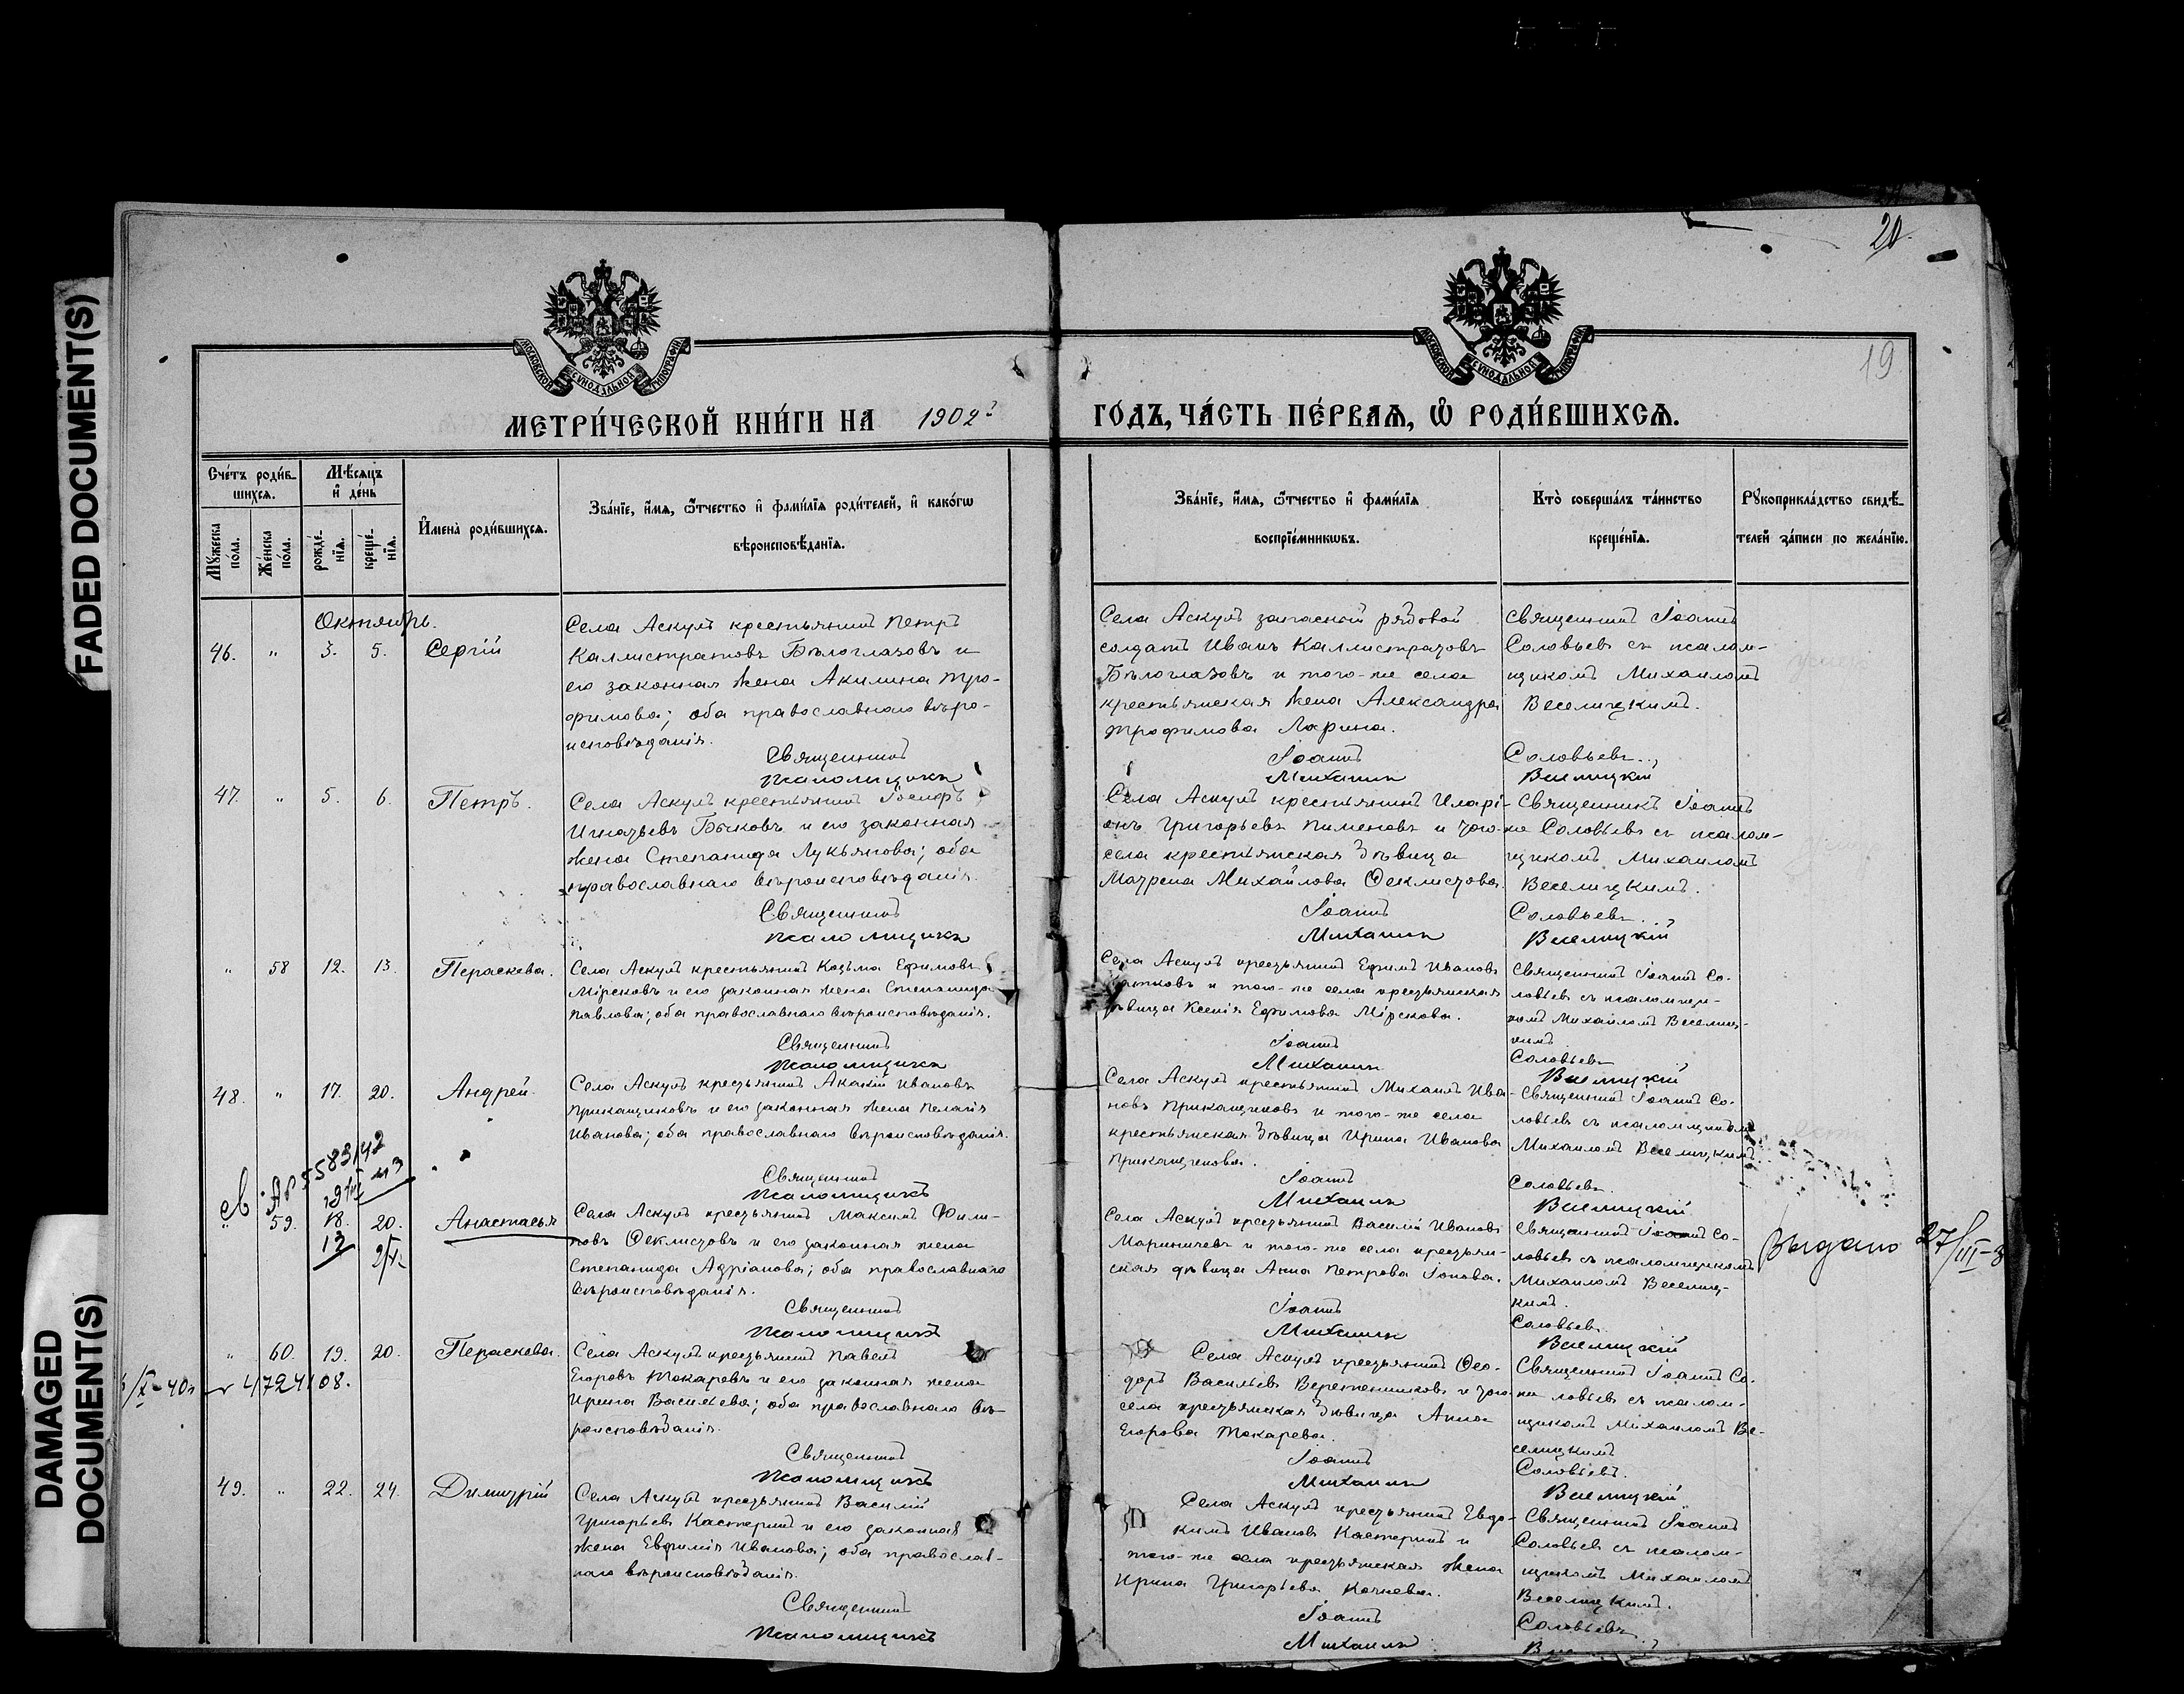 FADED DOCUMENT(S)
DAMAGED
DOCUMENT(S)
20.
19
МОСКОВСКОЙ СѴНОДАЛЬНОЙ ТИПОГРАФІИ
МОСКОВСКОЙ СѴНОДАЛЬНОЙ ТИПОГРАФІИ
МЕТРИ́ЧЕСКОЙ КНИ́ГИ НА 1902
ГО́ДЪ, ЧА́СТЬ ПЕ́РВАѦ, Ѡ҆ РОДИ́ВШИХСѦ.
Сче́тъ роди́в-
шихсѧ.
Мѣ́сѧцъ
и҆ де́нь
Мꙋ́жеска
по́ла.
Же́нска
по́ла.
рожде́-
нїѧ.
креще́-
нїѧ.
И҆мена̀ роди́вшихсѧ.
Зва́нїе, и҆́мѧ, ѻ҆́тчество и҆ фами́лїѧ роди́телей, и҆ како́гѡ
вѣроисповѣ́данїѧ.
Зва́нїе, и҆́мѧ, ѻ҆́тчество и҆ фами́лїѧ
воспрїе́мникѡвъ.
Кто̀ соверша́лъ та́инство
креще́нїѧ.
Рꙋкоприкла́дство свидѣ́-
телей за́писи по жела́нїю.
Октябрь.
46. " 3. 5. Сергій
Села Аскулъ крестьянинъ Петръ
Каллистратовъ Бѣлоглазовъ и
его законная жена Акилина Тро-
фимова; оба православнаго вѣро-
исповѣданія.
Священникъ
Псаломщикъ
Села Аскулъ запасной рядовой
солдатъ Иванъ Каллистратовъ
Бѣлоглазовъ и того-же села
крестьянская жена Александра
Трофимова Ларина.
Іоаннъ
Михаилъ
Священникъ Іоаннъ
Соловьевъ съ псалом-
щикомъ Михаиломъ
Веселицкимъ.
Соловьевъ.,
Веселицкій
47. " 5. 6. Петръ.
Села Аскулъ крестьянинъ Іосифъ
Игнатьевъ Быковъ и его законная
жена Степанида Лукьянова; оба
православнаго вѣроисповѣданія.
Священникъ
Псаломщикъ
Села Аскулъ крестьянинъ Иларі-
онъ Григорьевъ Пименовъ и того-же
села крестьянская дѣвица
Матрена Михайлова Ѳеклистова.
Іоаннъ
Михаилъ
Священникъ Іоаннъ
Соловьевъ съ псалом-
щикомъ Михаиломъ
Веселицкимъ.
Соловьевъ.,
Веселицкій
" 58 12. 13. Параскева.
Села Аскулъ крестьянинъ Козьма Ефимовъ
Мірсковъ и его законная жена Степанида
Павлова; оба православнаго вѣроисповѣданія.
Священникъ
Псаломщикъ
Села Аскулъ крестьянинъ Ефимъ Ивановъ
и того-же села крестьянская
дѣвица Ксенія Ефимова Мірскова.
Іоаннъ
Михаилъ
Священникъ Іоаннъ Со-
ловьевъ съ псаломщи-
комъ Михаиломъ Веселиц-
кимъ
Соловьевъ
Веселицкій
48. " 17. 20. Андрей.
Села Аскулъ крестьянинъ Акакій Ивановъ
Прикащиковъ и его законная жена Пелагія
Иванова; оба православнаго вѣроисповѣданія.
Священникъ
Псаломщикъ
Села Аскулъ крестьянинъ Михаилъ Ива-
новъ Прикащиковъ и того-же села
крестьянская дѣвица Ирина Иванова
Прикащикова.
Іоаннъ
Михаилъ
Священникъ Іоаннъ Со-
ловьевъ съ псаломщикомъ
Михаиломъ Веселицкимъ
Соловьевъ.
Веселицкій
" 59. 18. 20. Анастасья
13
Села Аскулъ крестьянинъ Максимъ Фили-
повъ Ѳеклистовъ и его законная жена
Степанида Адріанова; оба православнаго
вѣроисповѣданія.
Священникъ
Псаломщикъ
Села Аскулъ крестьянинъ Василій Ивановъ
Мариничевъ и того-же села крестьян-
ская дѣвица Анна Петрова Іонова.
Іоаннъ
Михаилъ
Священникъ Іоаннъ Со-
ловьевъ съ псаломщикомъ
Михаиломъ Веселиц-
кимъ.
Соловьевъ
Веселицкій
Выдано 27/III-
" 60. 19. 20. Параскева.
4724108.
Села Аскулъ крестьянинъ Павелъ
Егоровъ Токаревъ и его законная жена
Ирина Васильева; оба православнаго вѣ-
роисповѣданія.
Священникъ
Псаломщикъ
Села Аскулъ крестьянинъ Ѳео-
доръ Васильевъ Веретенниковъ и того-же
села крестьянская дѣвица Анна
Егорова Токарева.
Іоаннъ
Михаилъ
Священникъ Іоаннъ Со-
ловьевъ съ псалом-
щикомъ Михаиломъ Ве-
селицкимъ
Соловьевъ.
Веселицкій
49. " 22. 24. Димитрій
Села Аскулъ крестьянинъ Василій
Григорьевъ Кастеринъ и его законная
жена Евфимія Иванова; оба православ-
наго вѣроисповѣданія.
Священникъ
Псаломщикъ
Села Аскулъ крестьянинъ Евдо-
кимъ Ивановъ Кастеринъ и
того-же села крестьянская жена
Ирина Григорьева Качнева.
Іоаннъ
Михаилъ
Священникъ Іоаннъ
Соловьевъ съ псалом-
щикомъ Михаиломъ
Веселицкимъ.
Соловьевъ